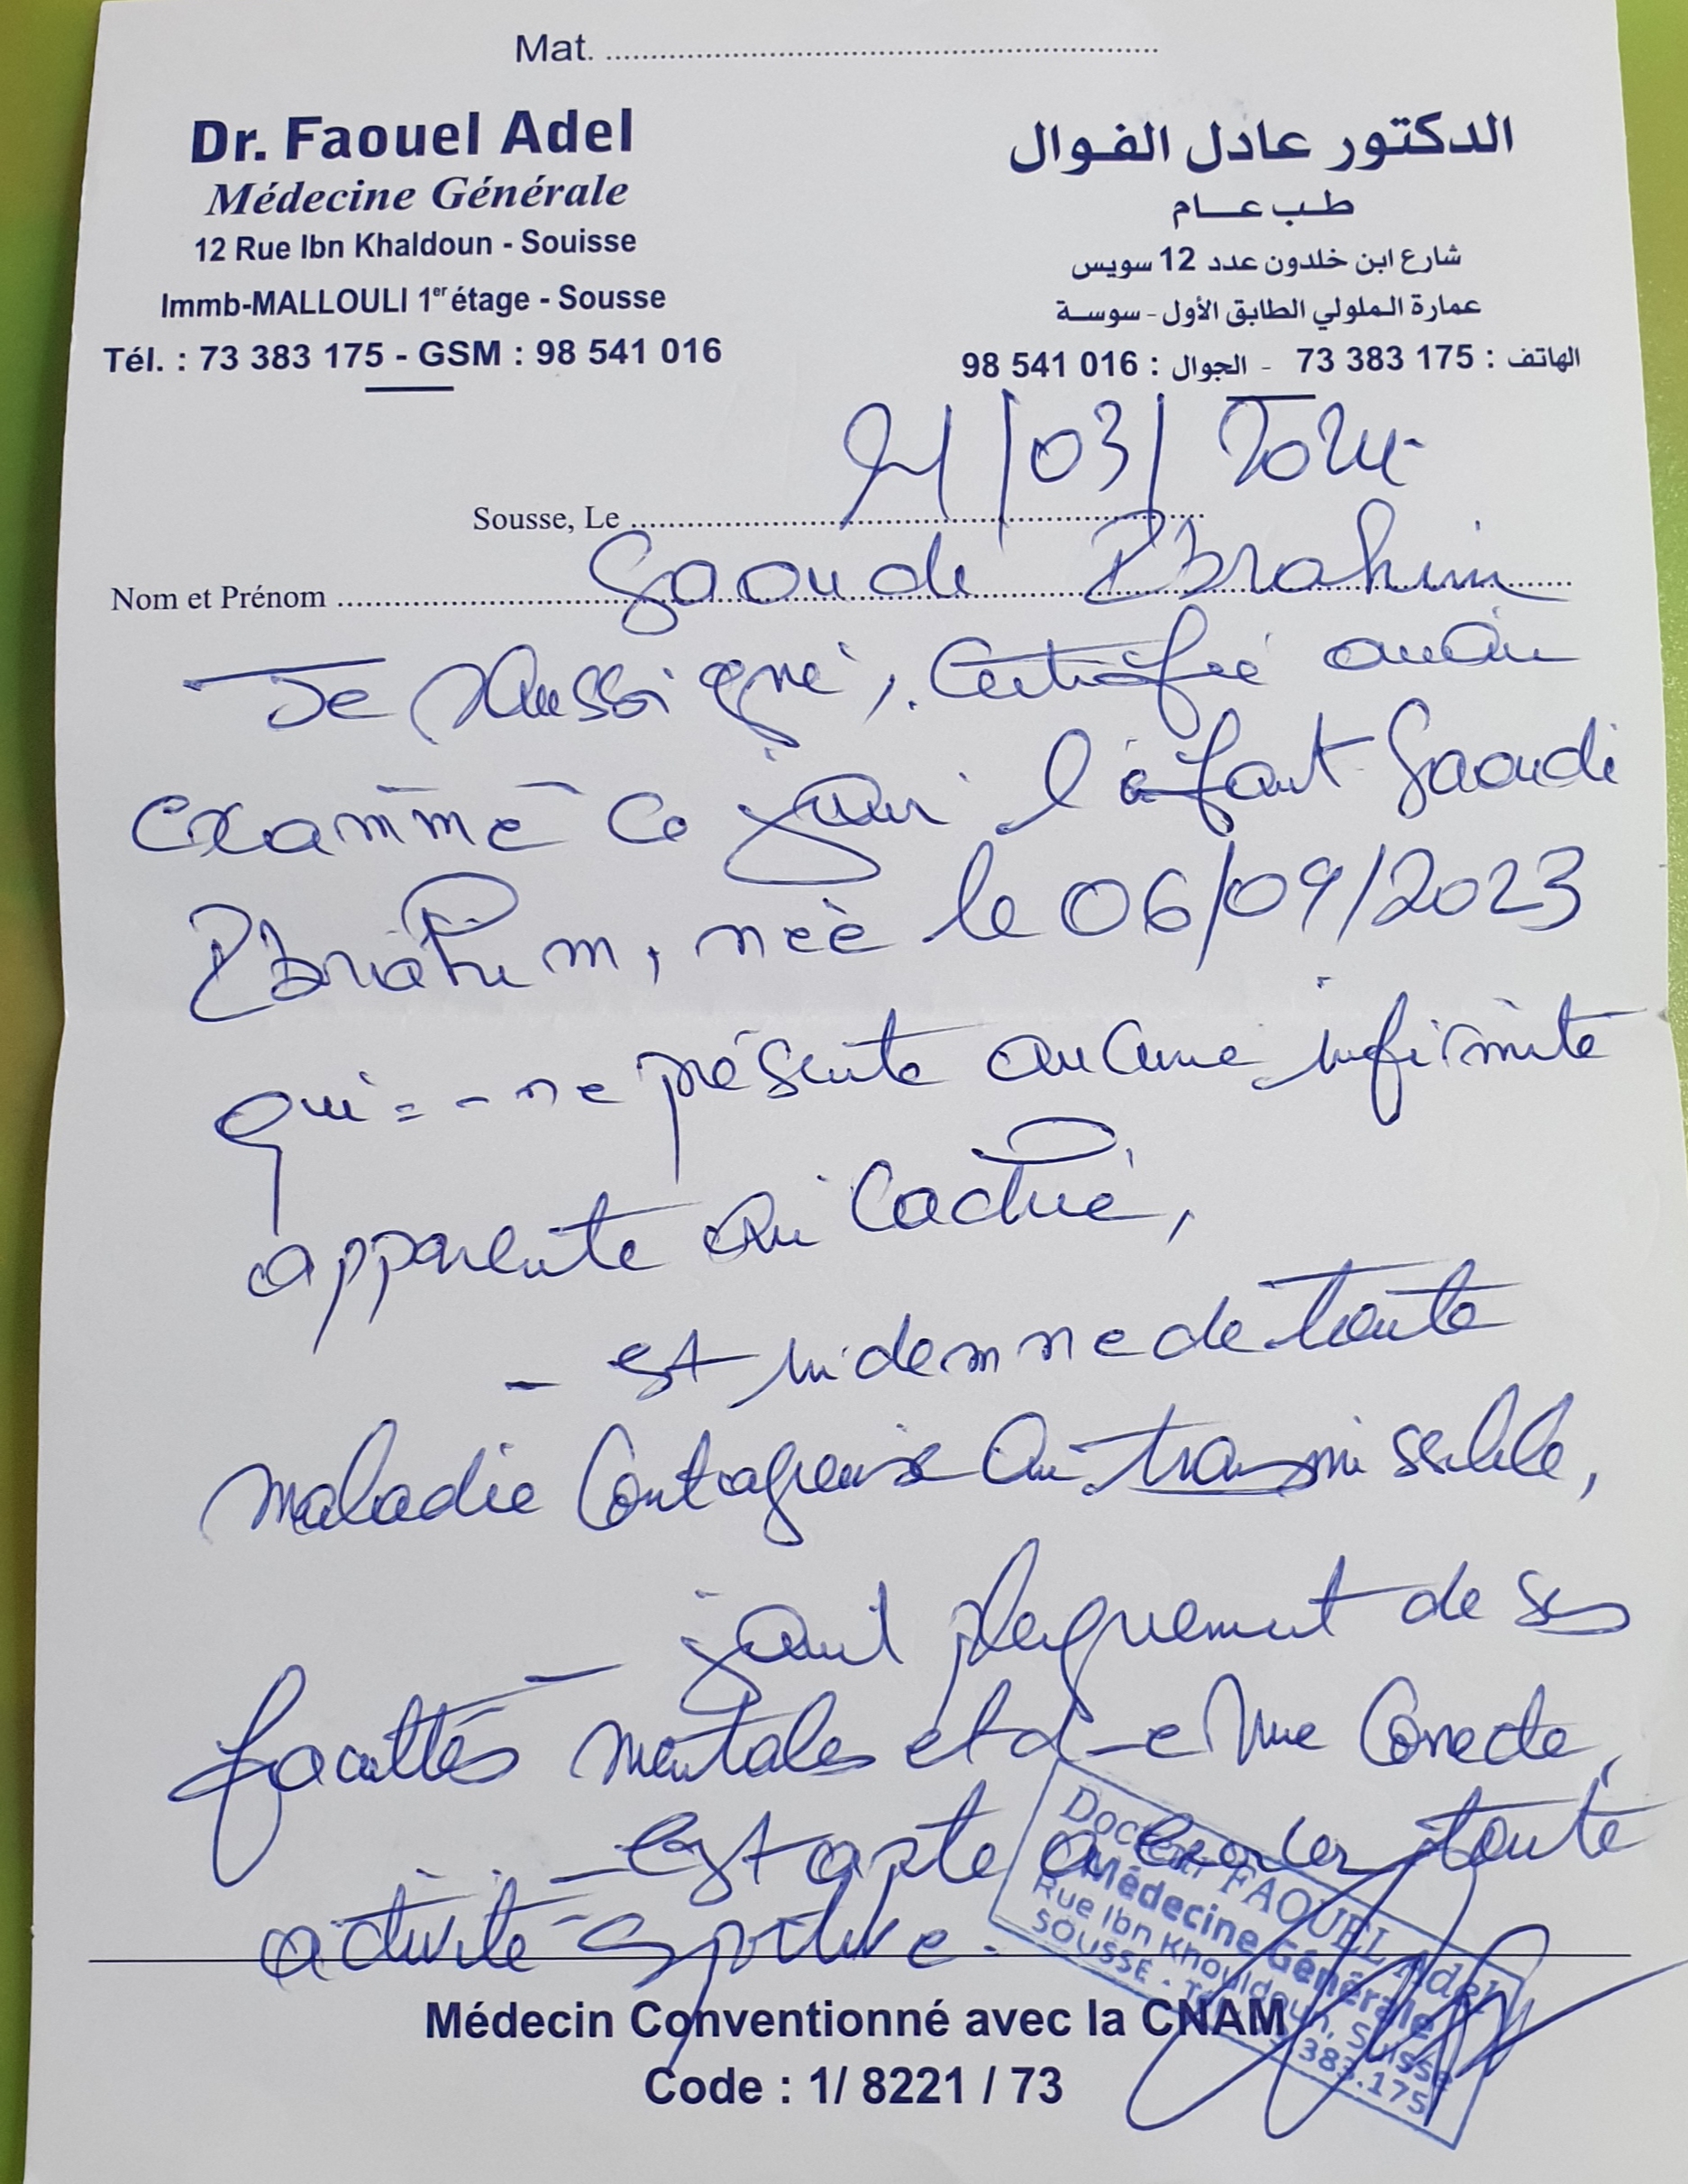 Mat. ..........
Dr. Faouel Adel
Médecine Générale
12 Rue Ibn Khaldoun - Souisse
Immb-MALLOULI 1er étage - Sousse
Tél. : 73 383 175 - GSM : 98 541 016
الدكتور عادل الفوال
طب عام
شارع ابن خلدون عدد 12 سويس
عمارة الملولي الطابق الأول - سوسة
الهاتف : 73 383 175 - الجوال : 98 541 016
Sousse, Le 21/03/2024
Nom et Prénom Saoudi Ibrahim
Je soussigné, Certifie avoir
examiné ce jour l'enfant Saoudi
Ibrahim, né le 06/09/2023
qui = - ne présente aucune infirmité
apparente ou cachée,
- est indemne de toute
maladie contagieuse ou transmissible,
- jouit pleinement de ses
facultés mentales et d'une vue correcte,
- est apte à exercer toute
activité sportive.
Docteur FAOUEL Adel
Médecine Générale
Rue Ibn Khouldoun, Suisse
SOUSSE - 383.175
Médecin Conventionné avec la CNAM
Code : 1/ 8221 / 73